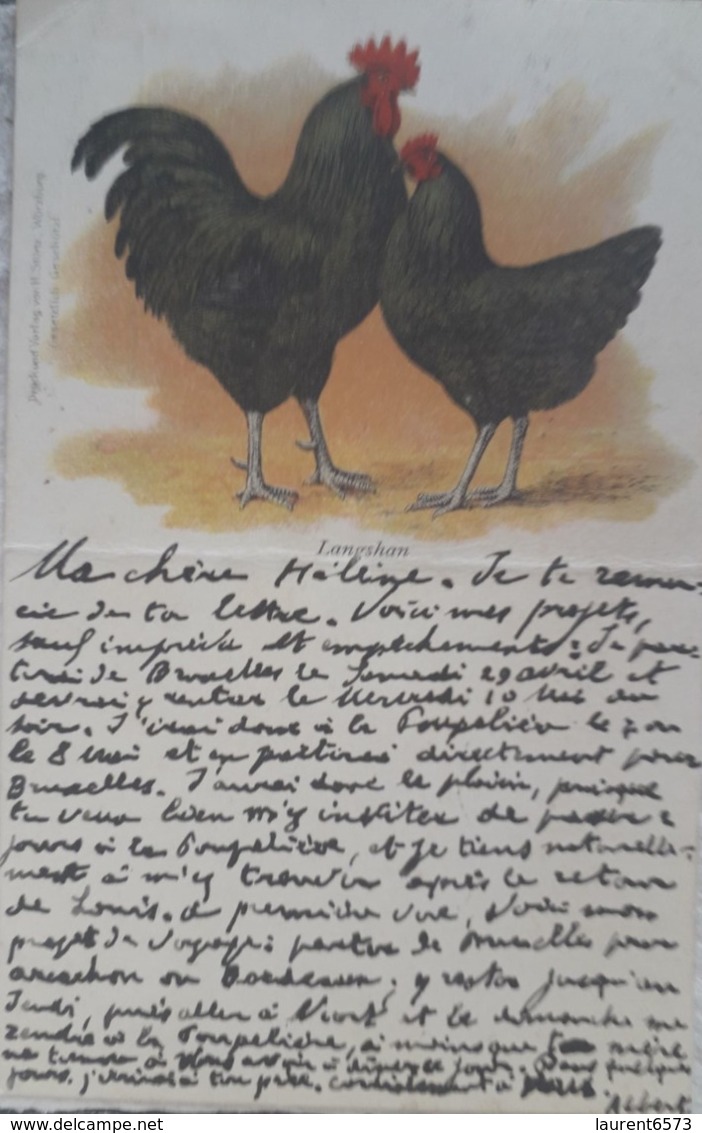 Langshan
Ma chère Hélène. Je te remer-
cie de ta lettre. Voici mes projets,
sauf imprévu et empêchements : Je par-
tirai de Bruxelles le Samedi 29 avril et
devrai y rentrer le Mercredi 10 Mai au
soir. J'irai donc à la Poupelière le 7 ou
le 8 Mai et en partirai directement pour
Bruxelles. J'aurai donc le plaisir, puisque
tu veux bien m'y inviter de passer 2
jours à la Poupelière, et je tiens naturelle-
ment à m'y trouver après le retour
de Louis. à première vue, Voici mon
projet de voyage : partir de Bruxelles pour
arcachon ou Bordeaux, y rester jusqu'au
Jeudi, puis aller à Niort et le dimanche me
rendre à la Poupelière, à moins que ta mère
ne tienne à à dîner ce jour. Dans quelques
jours, j'écrirai à ton père. cordialement à vous
Albert
delcampe.net
laurent6573